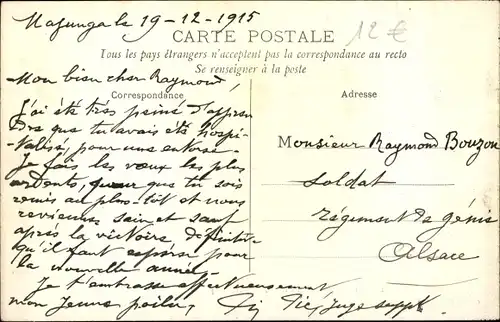 Majunga le 19-12-1915
12€
CARTE POSTALE
Tous les pays étrangers n'acceptent pas la correspondance au recto
Se renseigner à la poste
Correspondance
Adresse
Mon bien cher Raymond,
J'ai été très peiné d'appren
dre que tu avais été hospi-
talisé, pour une entorse.
Je fais les vœux les plus
ardents, pour que tu sois
remis au plus-tôt et nous
reviennes sain et sauf
après la victoire définitive
qu'il faut espérer pour
la nouvelle année.
Je t'embrasse affectueusement
mon jeune poilu,
juge suppt.
Monsieur Raymond Bouzon
Soldat
Régiment de génie
Alsace